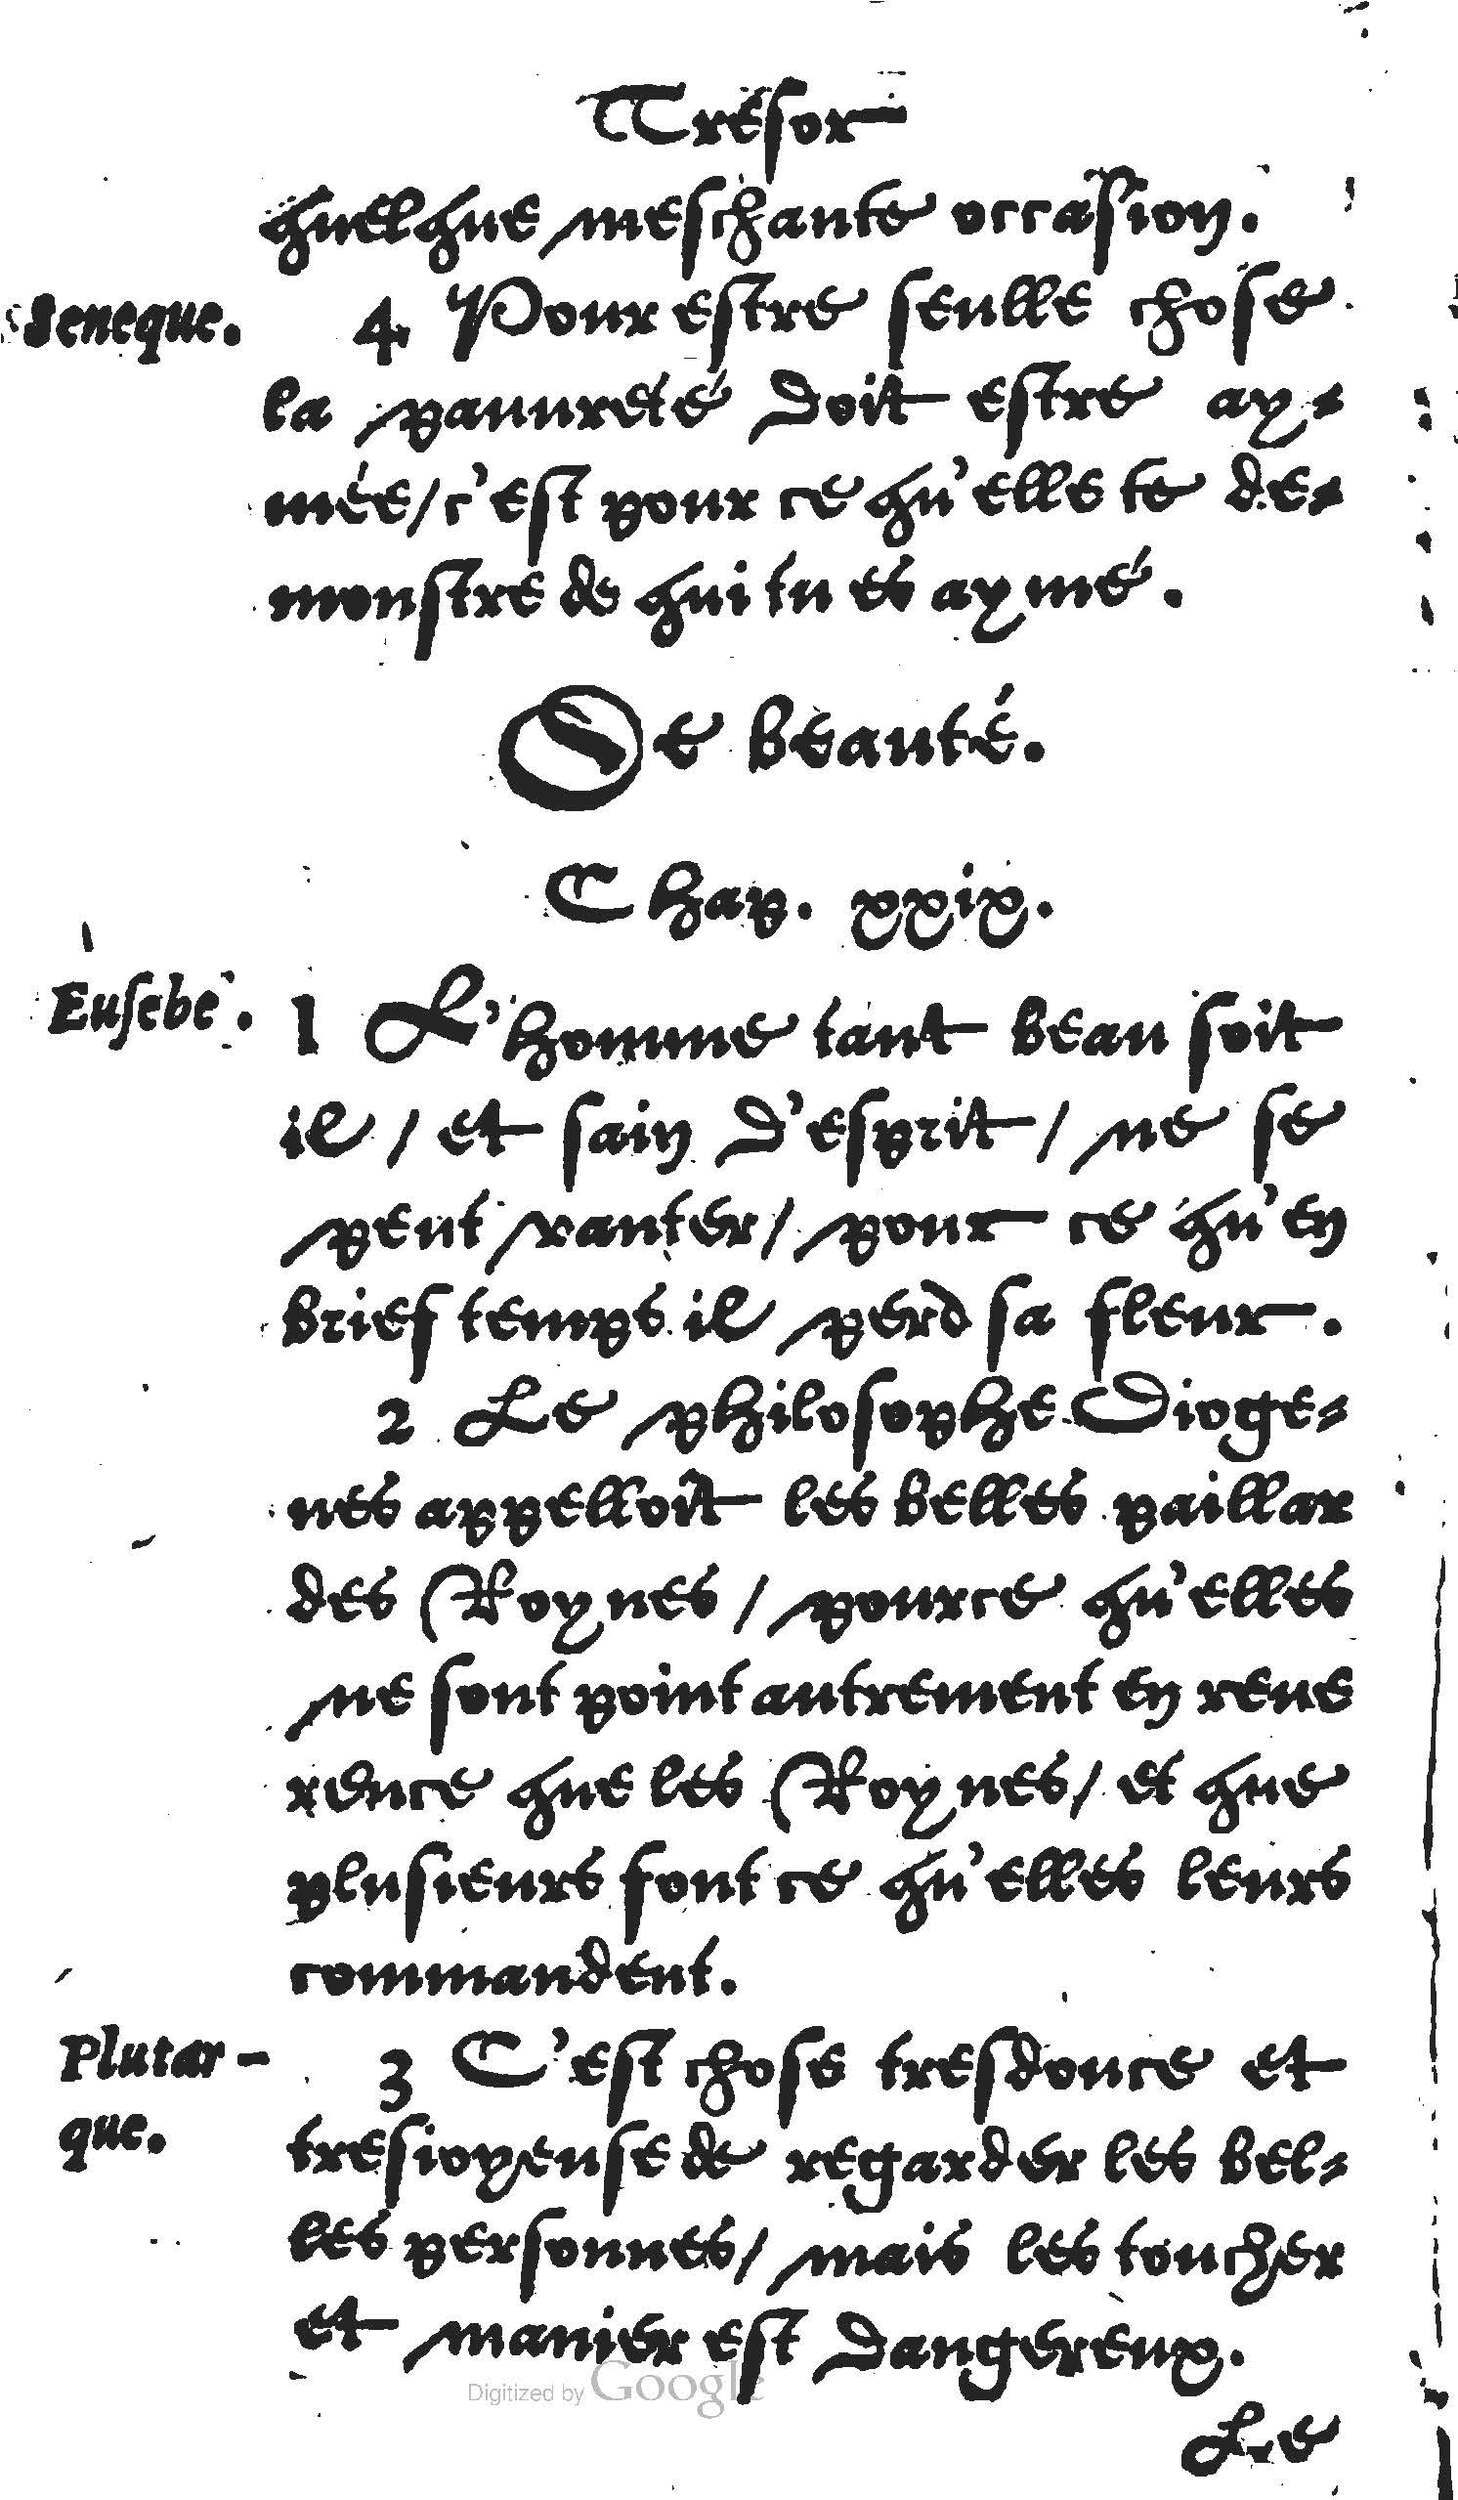 Tresor
quelque meschante occasion.
Seneque. 4 Pour estre seulle chose
la pauureté doit estre ay-
mée/c'est pour ce qu'elle te de-
monstre de qui tu es aymé.
De beauté.
Chap. xxix.
Eusebe. 1 L'homme tant beau soit
il/et sain d'esprit/ne se
peut vanter/pour ce qu'en
brief temps il perd sa fleur.
2 Le philosophe Dioge-
nes appelloit les belles paillar
des Roynes/pource qu'elles
ne sont point autrement en reue
rence que les Roynes/et que
plusieurs font ce qu'elles leurs
commandent.
Plutar-
que.
3 C'est chose tresdouce et
tresioyeuse de regarder les bel-
les personnes/mais les toucher
et manier est dangereux.
Le
Digitized by Google